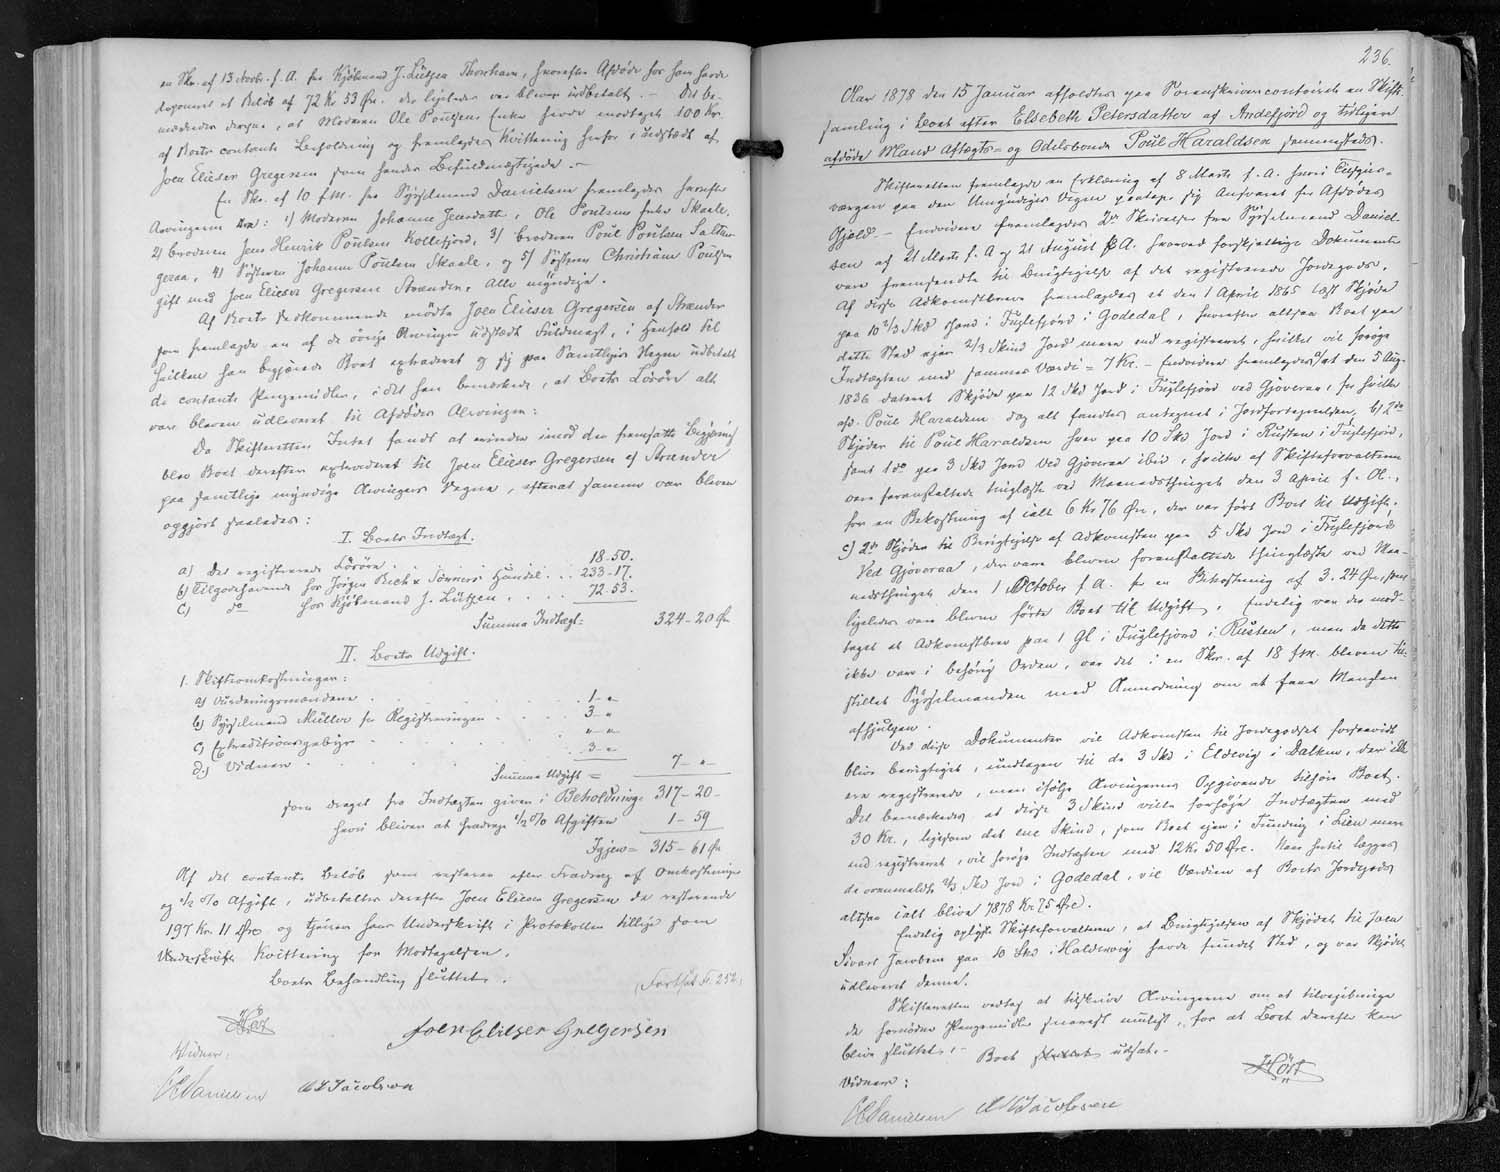 en Skr. af 13 Novbr. f. A. fra Kjøbmand J. Lützen Thorshavn, hvorefter Afdøde hos ham havde
deponeret et Beløb af 72 Kr 53 Øre, der ligeledes var bleven udbetalt. — Det be-
mærkedes derhos, at Moderen Ole Poulsens Enke havde modtaget 100 Kr.
af Boets contante Beholdning og fremlagdes Kvittering herfor udstædt af
Joen Elieser Gregersen som hendes Befuldmægtigede. —
En Skr. af 10 f. M. fra Sysselmand Danielsen fremlagdes hvorefter
Arvingerne ere: 1) Moderen Johanne Jensdatt., Ole Poulsens Enke Skaale,
2) Broderen Jens Henrik Poulsen Kollefjord, 3) Broderen Poul Poulsen Salten-
geraa, 4) Søsteren Johanne Poulsen Skaale, og 5) Søsteren Christiane Poulsen
gift med Joen Elieser Gregersen Strænder. Alle myndige.
Af Boets Vedkommende mødte Joen Elieser Gregersen af Strænder
som fremlagde en af de øvrige Arvinger udstædt Fuldmagt, i Henhold til
hvilken han begjærede Boet extraderet og sig paa Samtliges Vegne udbetalt
de contante Pengemidler, idet han bemærkede, at Boets Løsøre alt
vare bleven udleveret til Afdødes Arvinger:
Da Skifteretten Intet fandt at erindre imod den fremsatte Begjæring
blev Boet derefter extraderet til Joen Elieser Gregersen af Strænder
paa samtlige myndige Arvingers Vegne, efterat samme var bleven
opgjort saaledes:
I. Boets Indtægt.
a) Det registrerede Løsøre . . . 18-50.
b) Tilgodehavende hos Jørgen Bech & Sønners Handel . . 233-17.
c) do hos Kjøbmand J. Lützen . . . . 72-53.
Summa Indtægt = 324-20 Øre
II. Boets Udgift.
1. Skifteomkostninger:
a) Vurderingsmændene . . . . 1- "
b) Sysselmand Müller for Registreringen . . . . 3- "
c) Extraditionsgebyr . . . . " - "
d) Vidner . . . . 3- "
Summa Udgift = 7- " -
som draget fra Indtægten given i Beholdning 317-20-
hvori bliver at fradrage ½ % Afgiften 1-59
Igjen = 315-61 Øre
Af det contante Beløb som resterer efter Fradrag af Omkostninger
og ½ % Afgift, udbetaltes derefter Joen Elieser Gregersen de resterende
197 Kr. 11 Øre og tjener hans Underskrift i Protokollen tillige som
Kvittering for Modtagelsen.
Boets Behandling sluttet.
(Fortsat Fr. 252)
Høst
Joen Elieser Gregersen
Vidner:
Danielsen Jacobsen
236.
Aar 1878 den 15 Januar afholdtes paa Sorenskrivercontoiret en Skifte-
samling i Boet efter Elsebeth Petersdatter af Andefjord og tidligere
afdøde Mand Aftægts- og Odelsbonde Poul Haraldsen sammesteds.
Skifteretten fremlagde en Erklæring af 8 Marts f. A. hvori Tilsyns-
værgen paa den Umyndiges Vegne paatog sig Ansvaret for Afdødes
Gjæld. — Endvidere fremlagdes 2de Skrivelser fra Sysselmand Daniel-
sen af 21 Marts f. A og 21 August f. A. hvorved forskjellige Dokumenter
vare fremsendte til Berigtigelse af det registrerede Jordegods.
Af disse Adkomstbreve fremlagdes et den 1 April 1865 læst Skjøde
paa 10 2/3 Skd Jord i Fuglefjord i Godedal, hvorefter altsaa Boet paa
dette Sted ejer 2/3 Skind Jord mere end registreret, hvilket vil forøge
Indtægten med sammes Værdi = 7 Kr. — Endvidere fremlagdes a) et den 5 Aug.
1836 dateret Skjøde paa 12 Skd Jord i Fuglefjord ved Gjøveraa, for hvilke
afd. Poul Haraldsen dog alt fandtes antegnet i Jordfortegnelsen, b) 2de
Skjøder til Poul Haraldsen hver paa 10 Skd Jord i Rusten i Fuglefjord,
samt 1 do paa 3 Skd Jord Ved Gjøveraa ibid, hvilke af Skifteforvalteren
vare foranstaltede tinglæste ved Maanedsthinget den 3 April f. A.,
for en Bekostning af ialt 6 Kr 76 Øre, der var ført Boet til Udgift,
c) 2de Skjøder til Berigtigelse af Adkomsten paa 5 Skd Jord i Fuglefjord
Ved Gjøveraa, der vare blevne foranstaltede thinglæste ved Maa-
nedsthinget den 1 October f. A. for en Bekostning af 3.24 Øre, som
ligeledes vare blevne førte Boet til Udgift. Endelig var der mod-
taget et Adkomstbrev paa 1 Gl i Fuglefjord i Rusten, men da dette
ikke var i behørig Orden, var det i en Skr. af 18 f. M. bleven til-
stillet Sysselmanden med Anmodning om at faae Manglen
afhjulpen.
Ved disse Dokumenter vil Adkomsten til Jordegodset forsaavidt
blive berigtiget, undtagen til de 3 Skd i Eldevig i Dalken, der ikke
ere registrerede, men ifølge Arvingernes Opgivende tilhøre Boet.
Det bemærkedes at disse 3 Skind ville forhøje Indtægten med
30 Kr., ligesom det ene Skind, som Boet ejer i Funding i Lien mere
end registreret, vil forøge Indtægten med 12 Kr 50 Øre. Naar hertil lægges
de ovenmeldte 2/3 Skd Jord i Godedal, vil Værdien af Boets Jordegods
altsaa ialt blive 7878 Kr 75 Øre.
Endelig oplyste Skifteforvalteren, at Berigtigelsen af Skjødet til Joen
Sivert Jacobsen paa 10 Skd i Haldersvig havde fundet Sted, og var Skjødet
udleveret denne.
Skifteretten vedtog at tilskrive Arvingerne om at tilvejebringe
de fornødne Pengemidler snarest muligt, for at Boet derefter kan
blive sluttet. — Boet udsat. —
Høst
Vidner:
Danielsen Jacobsen